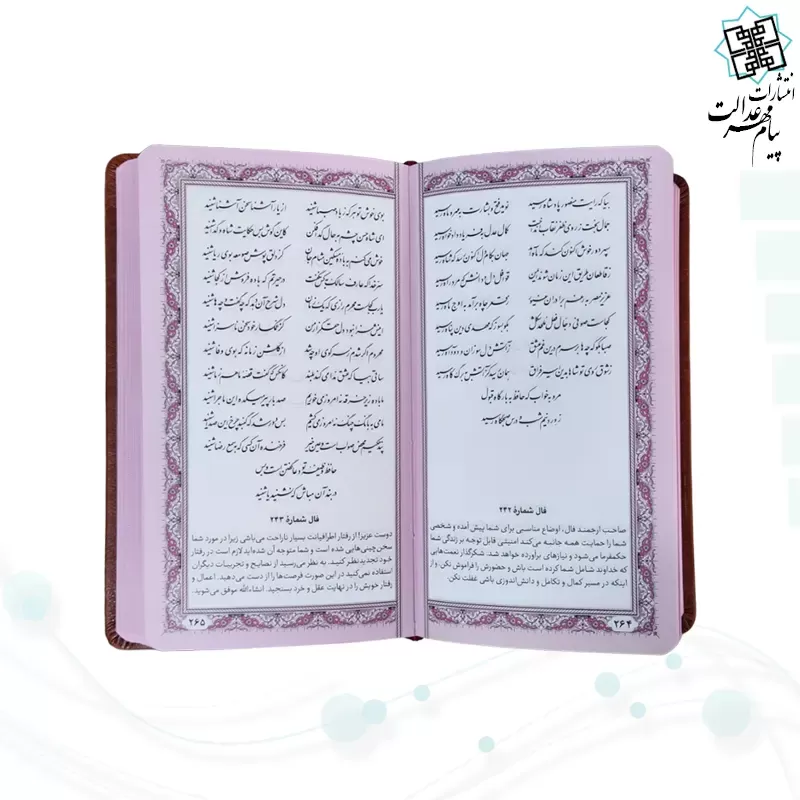 انتشارات
پیام مهر عدالت
بیا که رایت منصور پادشاه رسید نوید فتح و بشارت به مهر و ماه رسید
جمال بخت ز روی ظفر نقاب انداخت کمال عدل به فریاد دادخواه رسید
سپهر دور خوش اکنون کند که ماه آمد جهان به کام دل اکنون رسد که شاه رسید
ز قاطعان طریق این زمان شوند ایمن قوافل دل و دانش که مرد راه رسید
عزیز مصر به رغم برادران غیور ز قعر چاه برآمد به اوج ماه رسید
کجاست صوفی دجال فعل ملحد شکل بگو بسوز که مهدی دین پناه رسید
صبا بگو که چه‌ها بر سرم درین غم عشق ز آتش دل سوزان و دود آه رسید
ز شوق روی تو شاها بدین اسیر فراق همان رسید کز آتش به برگ کاه رسید
مرو به خواب که حافظ به بارگاه قبول
ز ورد نیم شب و درس صبحگاه رسید
فال شمارهٔ ۲۴۲
صاحب ارجمند فال، اوضاع مناسبی برای شما پیش آمده و شخصی
شما را حمایت همه جانبه می‌کند امنیتی قابل توجه بر زندگی شما
حکمفرما می‌شود و نیازهای برآورده خواهد شد. شکرگذار نعمت‌هایی
که خداوند شامل شما کرده است باش و حضورش را فراموش نکن. و از
اینکه در مسیر کمال و تکامل و دانش‌اندوزی باشی غفلت نکن.
۲۶۴
بوی خوش تو هر که ز باد صبا شنید از یار آشنا سخن آشنا شنید
ای شاه حسن چشم به حال گدا فکن کاین گوش بس حکایت شاه و گدا شنید
خوش می‌کنم به باده مشکین مشام جان کز دلق پوش صومعه بوی ریا شنید
سر خدا که عارف سالک به کس نگفت در حیرتم که باده فروش از کجا شنید
یا رب کجاست محرم رازی که یک زمان دل شرح آن دهد که چه گفت و چه‌ها شنید
اینش سزا نبود دل حق گزار من کز غمگسار خود سخن ناسزا شنید
محروم اگر شدم ز سر کوی او چه شد از گلشن زمانه که بوی وفا شنید
ساقی بیا که عشق ندا می‌کند بلند کانکس که گفت قصه ما هم ز ما شنید
ما باده زیر خرقه نه امروز می‌خوریم صد بار پیر میکده این ماجرا شنید
ما می به بانگ چنگ نه امروز می‌کشیم بس دور شد که گنبد چرخ این صدا شنید
پند حکیم محض صواب است و عین خیر فرخنده آن کسی که به سمع رضا شنید
حافظ وظیفه تو دعا گفتن است و بس
در بند آن مباش که نشنید یا شنید
فال شمارهٔ ۲۴۳
دوست عزیز! از رفتار اطرافیانت بسیار ناراحت می‌باشی زیرا در مورد شما
سخن‌چینی‌هایی شده است و شما متوجه آن شده‌اید لازم است در رفتار
خود تجدید نظر کنید. به نظر می‌رسید از نصایح و تجربیات دیگران
استفاده نمی‌کنید در این صورت فرصت‌ها را از دست می‌دهید. اعمال و
رفتار خویش را در نهایت عقل و خرد بسنجید. انشاءالله موفق می‌شوید.
۲۶۵